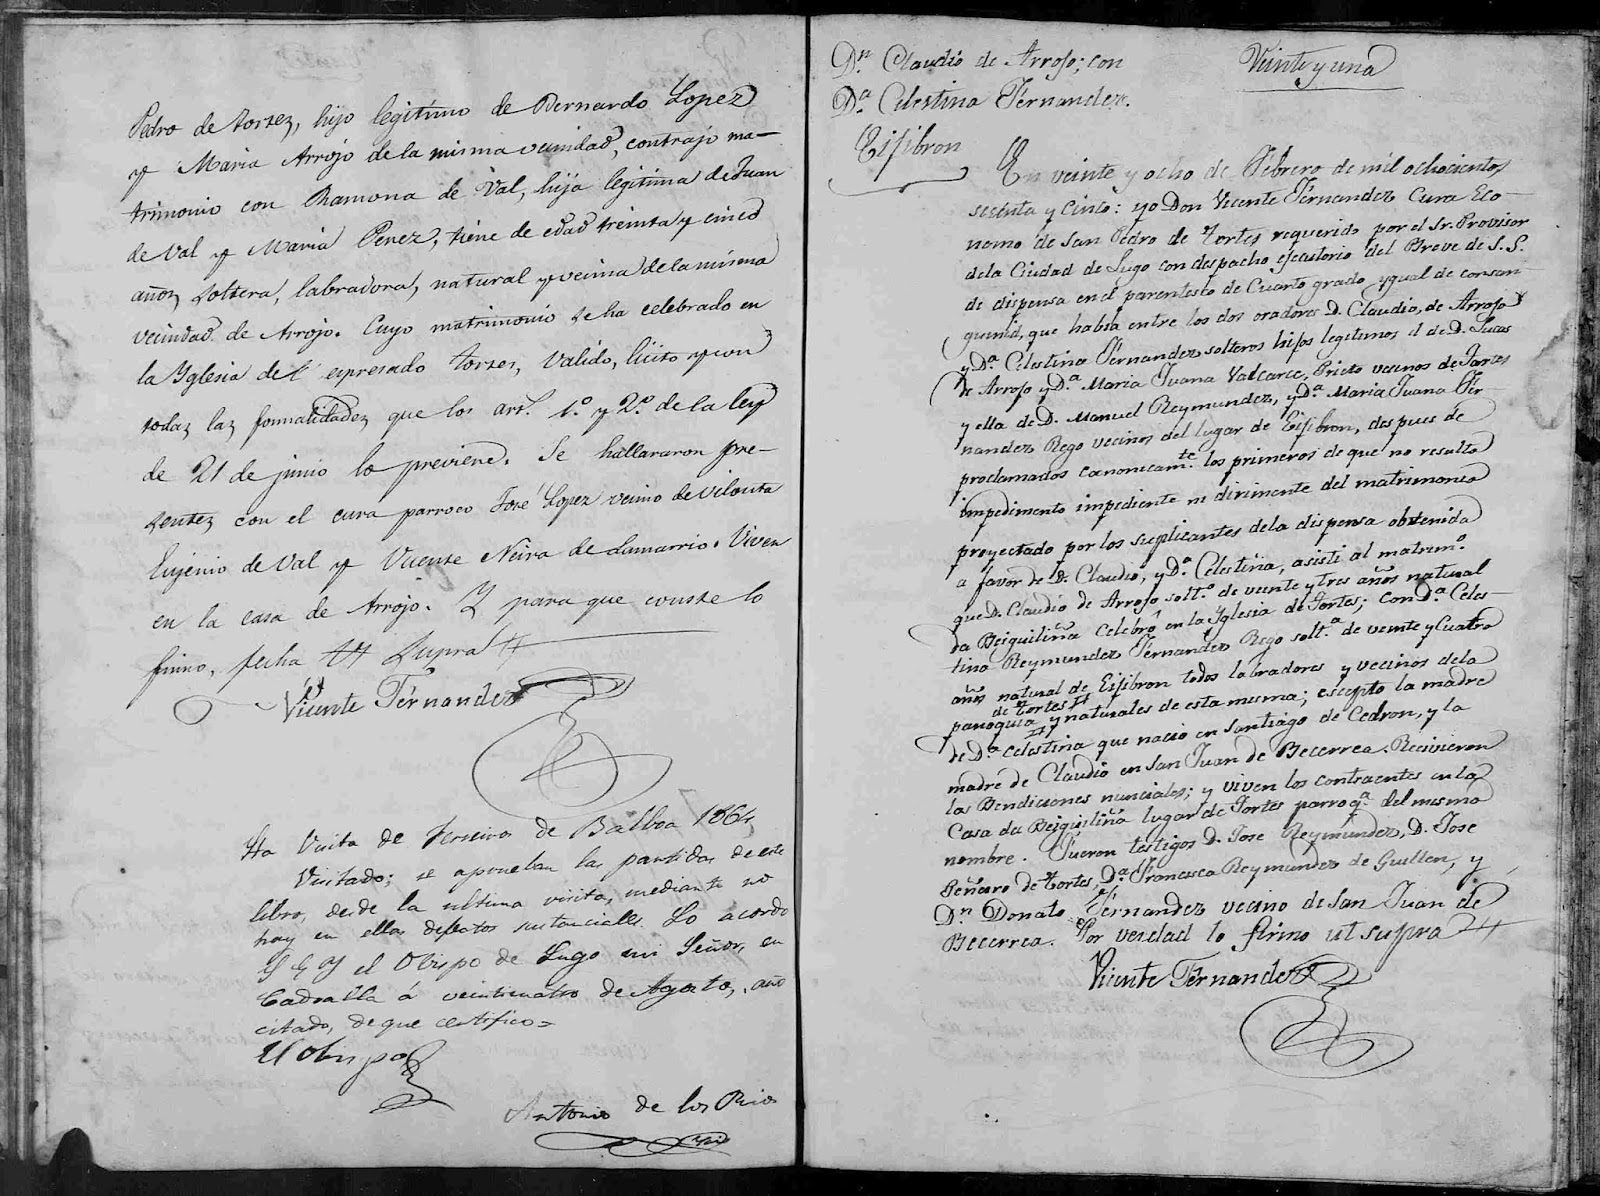 Pedro de torsez, hijo legitimo de Bernardo Lopez
y Maria Arrojo de la misma vecindad, contrajo ma-
trimonio con Ramona de Val, hija legitima de Juan
de Val y Maria Perez, tiene de edad treinta y cinco
años, soltera, labradora, natural y vecina de la misma
vecindad de Arrojo. Cuyo matrimonio se ha celebrado en
la Yglesia del espresado torsez, valido, licito y con
todas las formalidades que los art.s 1.º y 2.º de la ley
de 21 de junio lo previene. Se hallararon pre-
sentes con el cura parroco José Lopez vecino de Vilouta
Eujenio de Val y Vicente Neira de Lamarrio. Viven
en la casa de Arrojo. Y para que conste lo
firmo, fecha ut supra
Vicente Fernandez
Sta Visita de Terreira de Balboa 1864
Visitado; se aprueban las partidas de este
libro, desde la ultima visita, mediante no
hay en ellas defectos sustanciales. Lo acordo
S E Y el Obispo de Lugo mi Señor, en
Cadoalla á veinticuatro de Agosto, año
citado, de que certifico =
El Obispo
Antonio de los Rios
D.n Claudio de Arrojo; con
D.a Celestina Fernandez.
Eijibron
Veinte y una
En veinte y ocho de Febrero de mil ochocientos
sesenta y Cinco: yo Don Vicente Fernandez Cura Eco-
nomo de San Pedro de Tortes requerido por el Sr. Provisor
dela Ciudad de Lugo con despacho ejecutorio del Breve de S. S.
de dispensa en el parentesco de Cuarto grado ygual de consan
guinid, que habia entre los dos oradores D. Claudio, de Arrojo
y D.a Celestina Fernandez solteros hijos legitimos el de D. Lucas
de Arrojo y D.a Maria Juana Valcarce, Prieto vecinos de Tortes
y ella de D. Manuel Reymundez, y D.a Maria Juana Fer
nandez Rego vecinos del lugar de Eijibron, despues de
proclamados canonicam.te los primeros de que no resulto
impedimento impediente ni dirimente del matrimonio
proyectado por los suplicantes dela dispensa obtenida
a favor de D. Claudio, y D.a Celestina, asisti al matrim.o
que D. Claudio de Arrojo solt.o de veinte y tres años natural
da Beiguiliña Celebró en la Yglesia de Tortes; con D.a Celes-
tina Reymundez Fernandez Rego solt.a de veinte y Cuatro
años natural de Eijibron todos labradores y vecinos dela
de Tortes
parroquia y naturales de esta misma; escepto la madre
de D.a Celestina que nacio en Santiago de Cedron, y la
madre de Claudio en San Juan de Becerrea. Recivieron
las Bendiciones nunciales; y viven los contraentes en la
Casa da Beiguiliña lugar de Tortes parroq.a del mismo
nombre. Fueron testigos D. Jose Reymundez, D. Jose
Peñeiro de Tortes, D.a Francisca Reymundez de Guillen, y
D.n Donato Fernandez vecino de San Juan de
Becerrea. Por verdad lo firmo ut supra
Vicente Fernandez